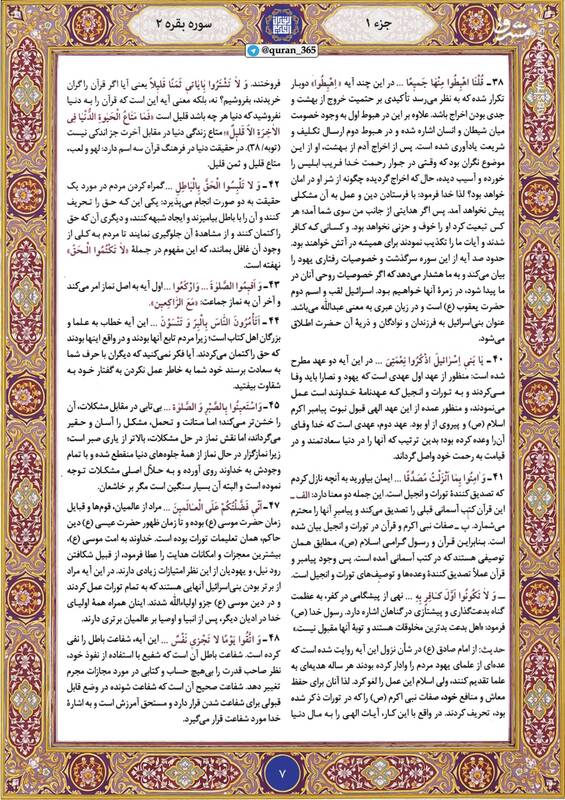 جزء ۱
سوره بقره ۲
مشرق
@quran_365
۳۸ـ قُلْنَا اهْبِطُوا مِنْهَا جَمِیعًا ... در این چند آیه «اِهبِطُوا» دوبار
تکرار شده که به نظر می‌رسد تأکیدی بر حتمیت خروج از بهشت و
جدی بودن اخراج باشد. علاوه بر این در هبوط اول به وجود خصومت
میان شیطان و انسان اشاره شده و در هبوط دوم ارسال تکلیف و
شریعت یادآوری شده است. پس از اخراج آدم از بهشت، او از این
موضوع نگران بود که وقتی در جوار رحمت خدا فریب ابلیس را
خورده و آسیب دیده، حال که اخراج گردیده چگونه از شرّ او در امان
خواهد بود؟ لذا خدا فرمود: با فرستادن دین و عمل به آن مشکلی
پیش نخواهد آمد. پس اگر هدایتی از جانب من سوی شما آمد؛ هر
کس تبعیت کرد او را خوف و حزنی نخواهد بود. و کسانی که کافر
شدند و آیات ما را تکذیب نمودند برای همیشه در آتش خواهند بود.
حدود صد آیه از این سوره سرگذشت و خصوصیات رفتاری یهود را
بیان می‌کند و به ما هشدار می‌دهد که اگر خصوصیات روحی آنان در
ما پیدا شود، در زمرهٔ آنها خواهیم بود. اسرائیل لقب و اسم دوم
حضرت یعقوب (ع) است و در زبان عبری به معنی عبدالله می‌باشد.
عنوان بنی‌اسرائیل به فرزندان و نوادگان و ذریهٔ آن حضرت اطلاق
می‌شود.
۴۰ـ یَا بَنِی إِسْرَائِیلَ اذْکُرُوا نِعْمَتِیَ ... در این آیه دو عهد مطرح
شده است: منظور از عهد اول عهدی است که یهود و نصارا باید وفا
می‌کردند و به تورات و انجیل که عهدنامهٔ خداوند است عمل
می‌نمودند، و منظور عمده از این عهد الهی قبول نبوت پیامبر اکرم
اسلام (ص) و پیروی از او بود. عهد دوم، عهدی است که خدا وفای
آن را وعده کرده بود؛ بدین ترتیب که آنها را در دنیا سعادتمند و در
قیامت به رحمت خود واصل گرداند.
۴۱ـ وَ آمِنُوا بِمَا أَنْزَلْتُ مُصَدِّقًا ... ایمان بیاورید به آنچه نازل کردم
که تصدیق کنندهٔ تورات و انجیل است. این جمله دو معنا دارد: الف ـ
این قرآن کتب آسمانی قبلی را تصدیق می‌کند و پیامبر آنها را محترم
می‌شمارد. ب ـ صفات نبی اکرم و قرآن در تورات و انجیل بیان شده
است. بنابراین قرآن و رسول گرامی اسلام (ص)، مطابق همان
توصیفی هستند که در کتب آسمانی آمده است. پس وجود پیامبر و
قرآن عملاً تصدیق کنندهٔ وعده‌ها و توصیف‌های تورات و انجیل است.
ـ وَ لَا تَکُونُوا أَوَّلَ کَافِرٍ بِهِ ... نهی از پیشگامی در کفر، به عظمت
گناه بدعت‌گذاری و پیشتازی در گناهان اشاره دارد. رسول خدا (ص)
فرمود: «اهل بدعت بدترین مخلوقات هستند و توبهٔ آنها مقبول نیست.»
حدیث: از امام صادق (ع) در شأن نزول این آیه روایت شده است که
عده‌ای از علمای یهود مردم را وادار کرده بودند هر ساله هدیه‌ای به
علما تقدیم کنند، ولی اسلام این عمل را لغو کرد. لذا آنان برای حفظ
معاش و منافع خود، صفات نبی اکرم (ص) را که در تورات ذکر شده
بود، تحریف کردند. در واقع با این کار، آیات الهی را به مال دنیا
فروختند. وَ لَا تَشْتَرُوا بِآیَاتِی ثَمَنًا قَلِیلًا یعنی آیا اگر قرآن را گران
خریدند، بفروشیم؟ نه، بلکه معنی آیه این است که قرآن را به دنیا
نفروشید که دنیا هر چه باشد قلیل است «فَمَا مَتَاعُ الْحَیٰوةِ الدُّنْیَا فِی
الْآخِرَةِ إِلَّا قَلِیلٌ» متاع زندگی دنیا در مقابل آخرت جز اندکی نیست
(توبه/۳۸). در حقیقت دنیا در فرهنگ قرآن سه اسم دارد: لهو و لعب،
متاع قلیل و ثمن قلیل.
۴۲ـ وَ لَا تَلْبِسُوا الْحَقَّ بِالْبَاطِلِ ... گمراه کردن مردم در مورد یک
حقیقت به دو صورت انجام می‌پذیرد: یکی این که حق را تحریف
کنند و آن را با باطل بیامیزند و ایجاد شبهه کنند، و دیگری آن که حق
را کتمان کنند و از مشاهدهٔ آن جلوگیری نمایند تا مردم به کلی از
وجود آن غافل بمانند، که این مفهوم در جملهٔ «لَا تَکْتُمُوا الْحَقَّ»
نهفته است.
۴۳ـ وَ أَقِیمُوا الصَّلٰوةَ ... وَ ارْکَعُوا ... اول آیه به اصل نماز امر می‌کند
و آخر آن به نماز جماعت: «مَعَ الرَّاکِعِینَ».
۴۴ـ أَتَأْمُرُونَ النَّاسَ بِالْبِرِّ وَ تَنْسَوْنَ ... این آیه خطاب به علما و
بزرگان اهل کتاب است؛ زیرا مردم تابع آنها بودند و در واقع اینها بودند
که حق را کتمان می‌کردند. آیا فکر نمی‌کنید که دیگران با حرف شما
به سعادت برسند خود شما به خاطر عمل نکردن به گفتار خود به
شقاوت بیفتید.
۴۵ـ وَ اسْتَعِینُوا بِالصَّبْرِ وَ الصَّلٰوةِ ... بی‌تابی در مقابل مشکلات، آن
را خشن‌تر می‌کند؛ اما متانت و تحمل، مشکل را آسان و حقیر
می‌گرداند، اما نقش نماز در حل مشکلات، بالاتر از یاری صبر است؛
زیرا نمازگزار در حال نماز از همهٔ جلوه‌های دنیا منقطع شده و با تمام
وجودش به خداوند روی آورده و به حلّال اصلی مشکلات توجه
نموده است و البته آن بسیار سنگین است مگر بر خاشعان.
۴۷ـ أَنِّی فَضَّلْتُکُمْ عَلَی الْعَالَمِینَ ... مراد از عالمیان، قوم‌ها و قبایل
زمان حضرت موسی (ع) بوده و تا زمان ظهور حضرت عیسی (ع) دین
حاکم، همان تعلیمات تورات بوده است. خداوند به امت موسی (ع)،
بیشترین معجزات و امکانات هدایت را عطا فرمود، از قبیل شکافتن
رود نیل، و یهودیان از این نظر امتیازات زیادی دارند. در این آیه مراد
از برتر بودن بنی‌اسرائیل آنهایی هستند که به تمام تورات عمل کردند
و در دین موسی (ع) جزو اولیاءالله شدند. اینان همراه همهٔ اولیای
خدا در ادیان دیگر، پس از انبیا و اوصیا بر عالمیان برتری دارند.
۴۸ـ وَ اتَّقُوا یَوْمًا لَا تَجْزِی نَفْسٌ ... این آیه، شفاعت باطل را نفی
کرده است. شفاعت باطل آن است که شفیع با استفاده از نفوذ خود،
نظر صاحب قدرت را بی‌هیچ حساب و کتابی در مورد مجازات مجرم
تغییر دهد. شفاعت صحیح آن است که شفاعت شونده در وضع قابل
قبولی برای شفاعت شدن قرار دارد و مستحق آمرزش است و به اشارهٔ
خدا مورد شفاعت قرار می‌گیرد.
۷